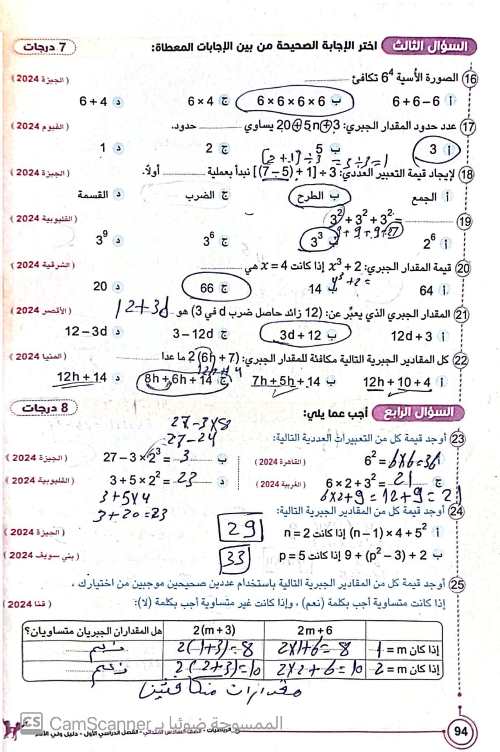 السؤال الثالث اختر الإجابة الصحيحة من بين الإجابات المعطاة: 7 درجات
16 الصورة الأسية 6⁴ تكافئ ............ (الجيزة 2024)
أ 6 + 6 − 6 ب 6 × 6 × 6 × 6 ج 6 × 4 د 6 + 4
17 عدد حدود المقدار الجبري: 20 + 5n + 3 يساوي ............ حدود. (الفيوم 2024)
أ 3 ب 5 ج 2 د 1
[2 + 1] ÷ 3 = 3 ÷ 3 = 1
18 لإيجاد قيمة التعبير العددي: 3 ÷ [(7 − 5) + 1] نبدأ بعملية ............ أولًا. (الجيزة 2024)
أ الجمع ب الطرح ج الضرب د القسمة
19 3² + 3² + 3² = ............ (القليوبية 2024)
9 + 9 + 9 = 27
أ 2⁶ ب 3³ ج 3⁶ د 3⁹
20 قيمة المقدار الجبري: x³ + 2 إذا كانت x = 4 هي ............ (الشرقية 2024)
4³ + 2 =
أ 64 ب 14 ج 66 د 20
21 المقدار الجبري الذي يعبّر عن: (12 زائد حاصل ضرب d في 3) هو 12 + 3d (الأقصر 2024)
أ 12d + 3 ب 3d + 12 ج 3 − 12d د 12 − 3d
22 كل المقادير الجبرية التالية مكافئة للمقدار الجبري: 2 (6h + 7) ما عدا ............ (المنيا 2024)
12h + 14
أ 12h + 10 + 4 ب 7h + 5h + 14 ج 8h + 6h + 14 د 12h + 14
السؤال الرابع أجب عما يلي: 8 درجات
27 − 3 × 8
27 − 24
23 أوجد قيمة كل من التعبيرات العددية التالية:
أ 6² = 6 × 6 = 36 (القاهرة 2024) ب 27 − 3 × 2³ = 3 (الجيزة 2024)
ج 6 × 2 + 3² = 21 (الغربية 2024) د 3 + 5 × 2² = 23 (القليوبية 2024)
6 × 2 + 9 = 12 + 9 = 21
3 + 5 × 4
3 + 20 = 23
24 أوجد قيمة كل من المقادير الجبرية التالية:
أ (n − 1) × 4 + 5² إذا كانت n = 2 29 (الجيزة 2024)
ب 9 + (p² − 3) + 2 إذا كانت p = 5 33 (بني سويف 2024)
25 أوجد قيمة كل من المقادير الجبرية التالية باستخدام عددين صحيحين موجبين من اختيارك ،
إذا كانت متساوية أجب بكلمة (نعم) ، وإذا كانت غير متساوية أجب بكلمة (لا): (قنا 2024)
2m + 6 2(m + 3) هل المقداران الجبريان متساويان؟
إذا كان m = 1 2×1+6 = 8 2(1+3) = 8 نعم
إذا كان m = 2 2×2+6 = 10 2(2+3) = 10 نعم
CS CamScanner الممسوحة ضوئيا بـ
94